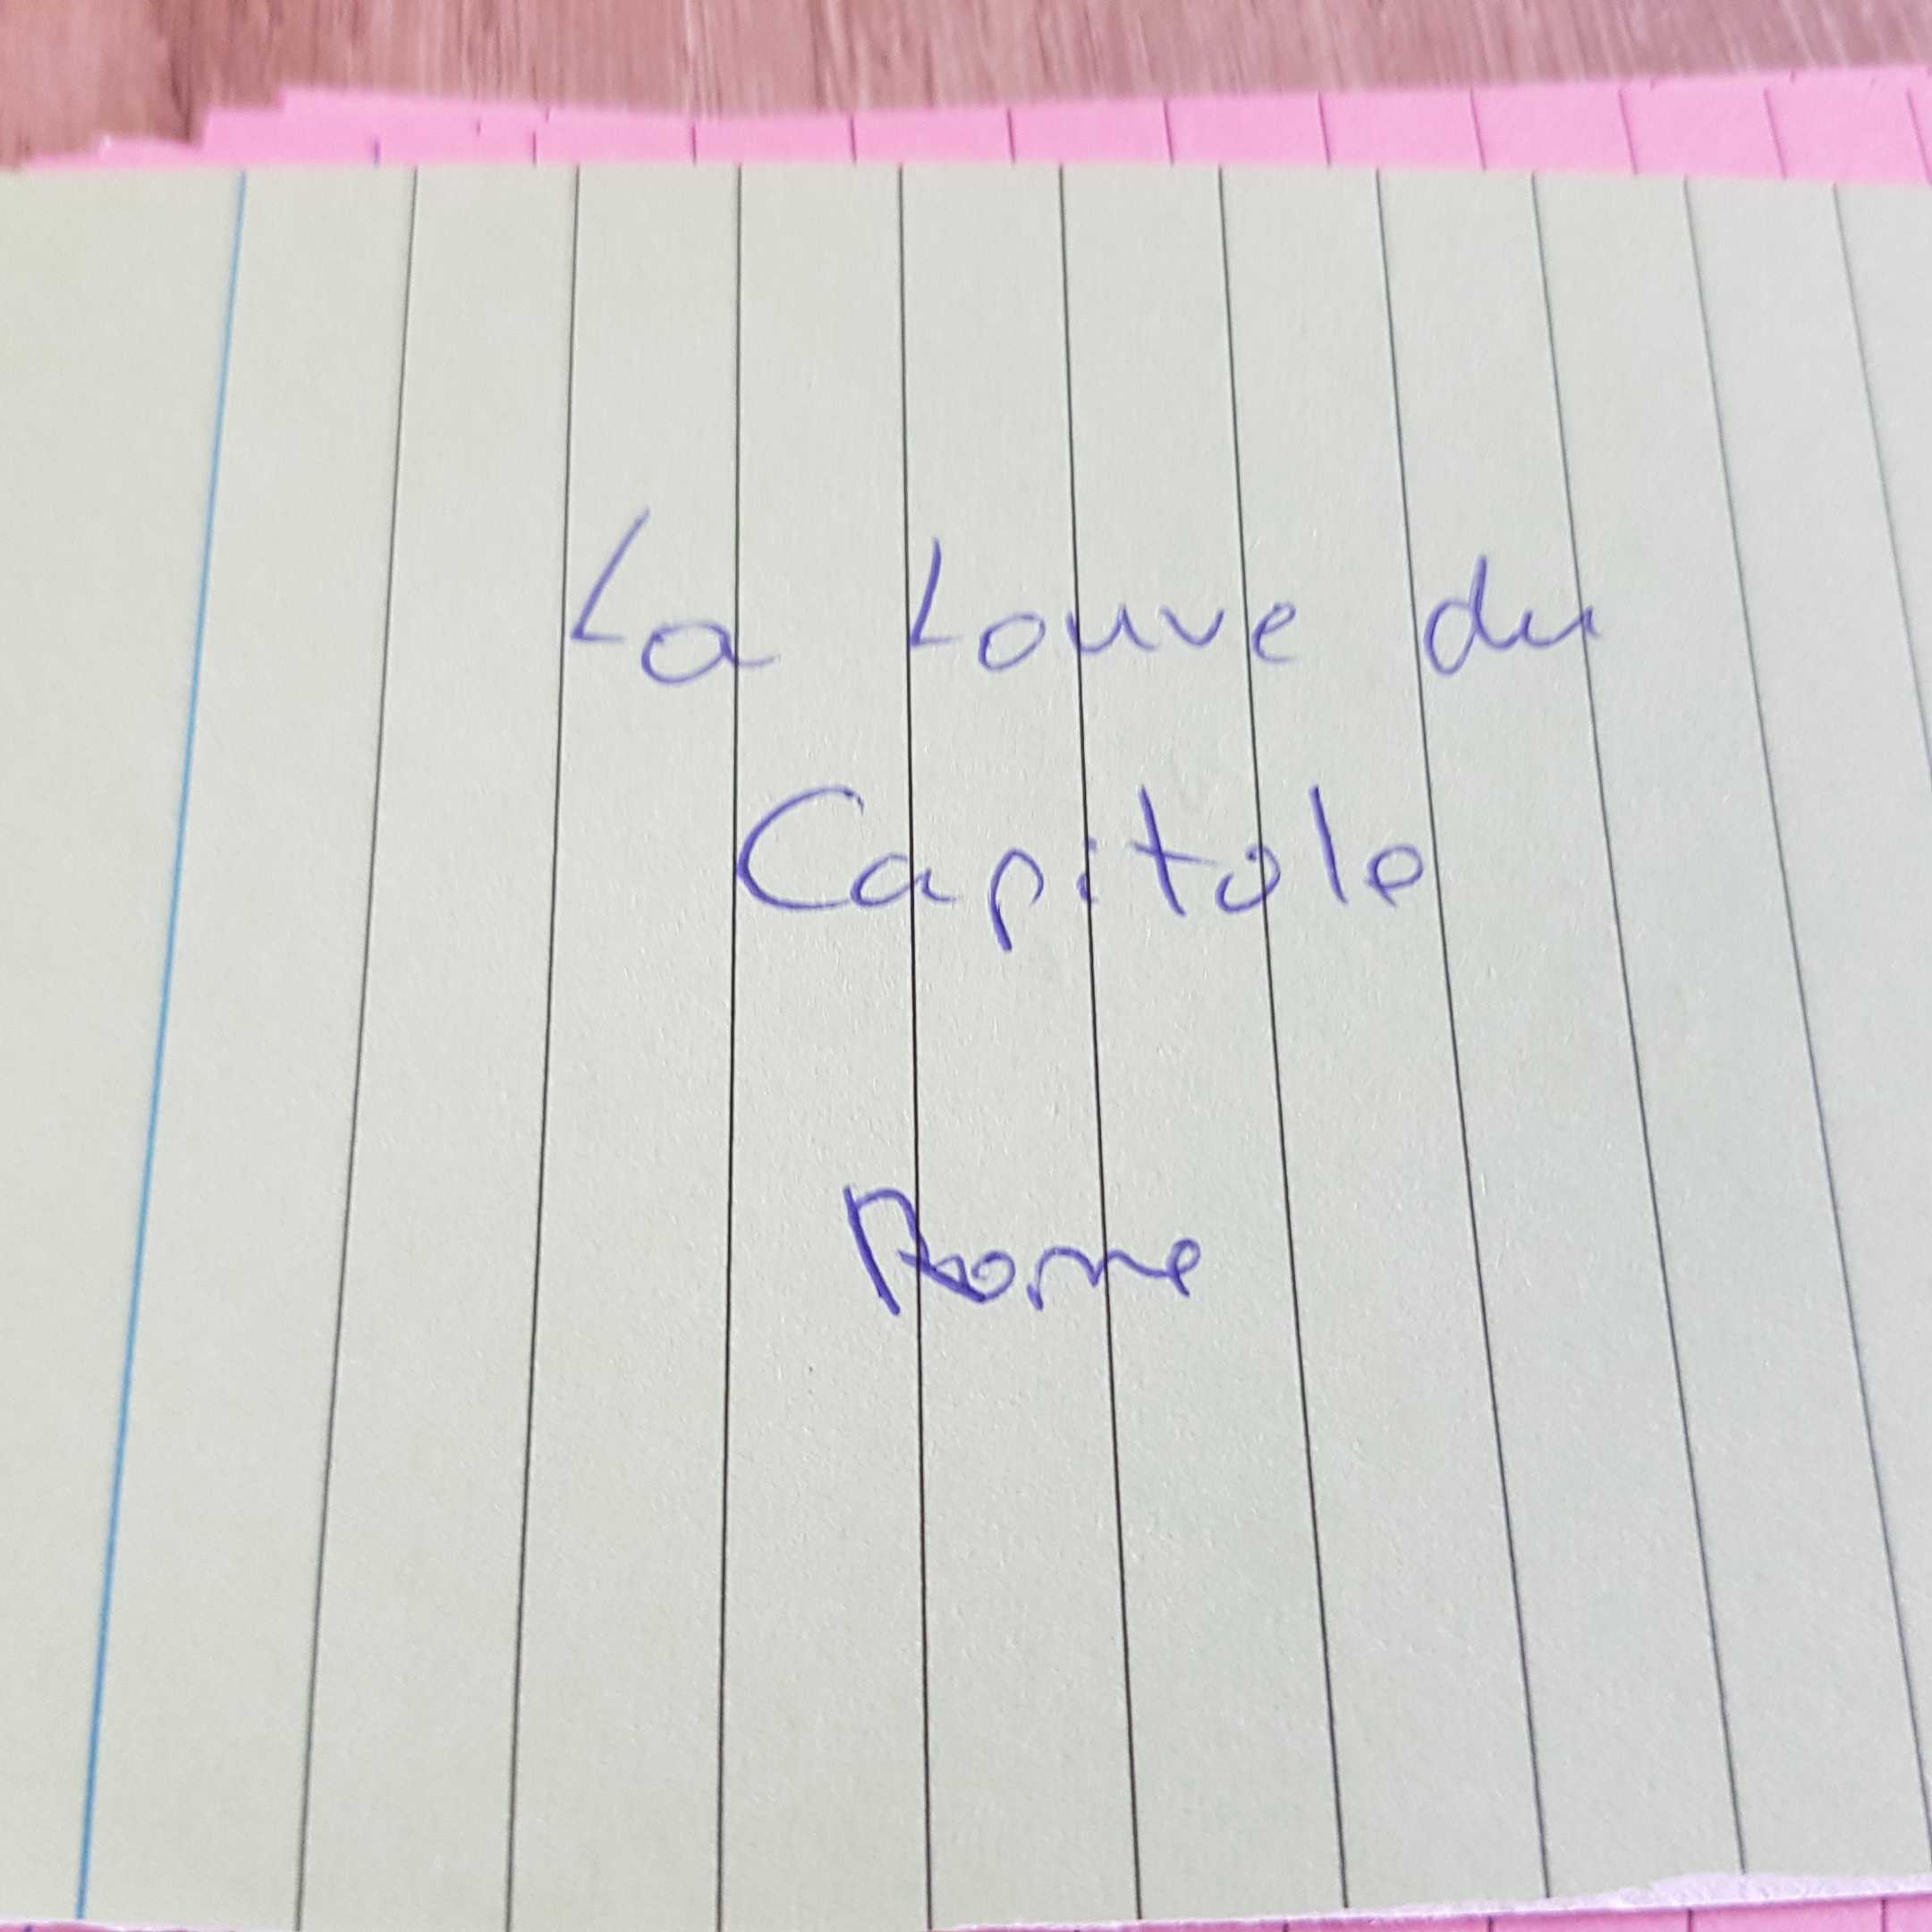 La Louve du
Capitole
Rome